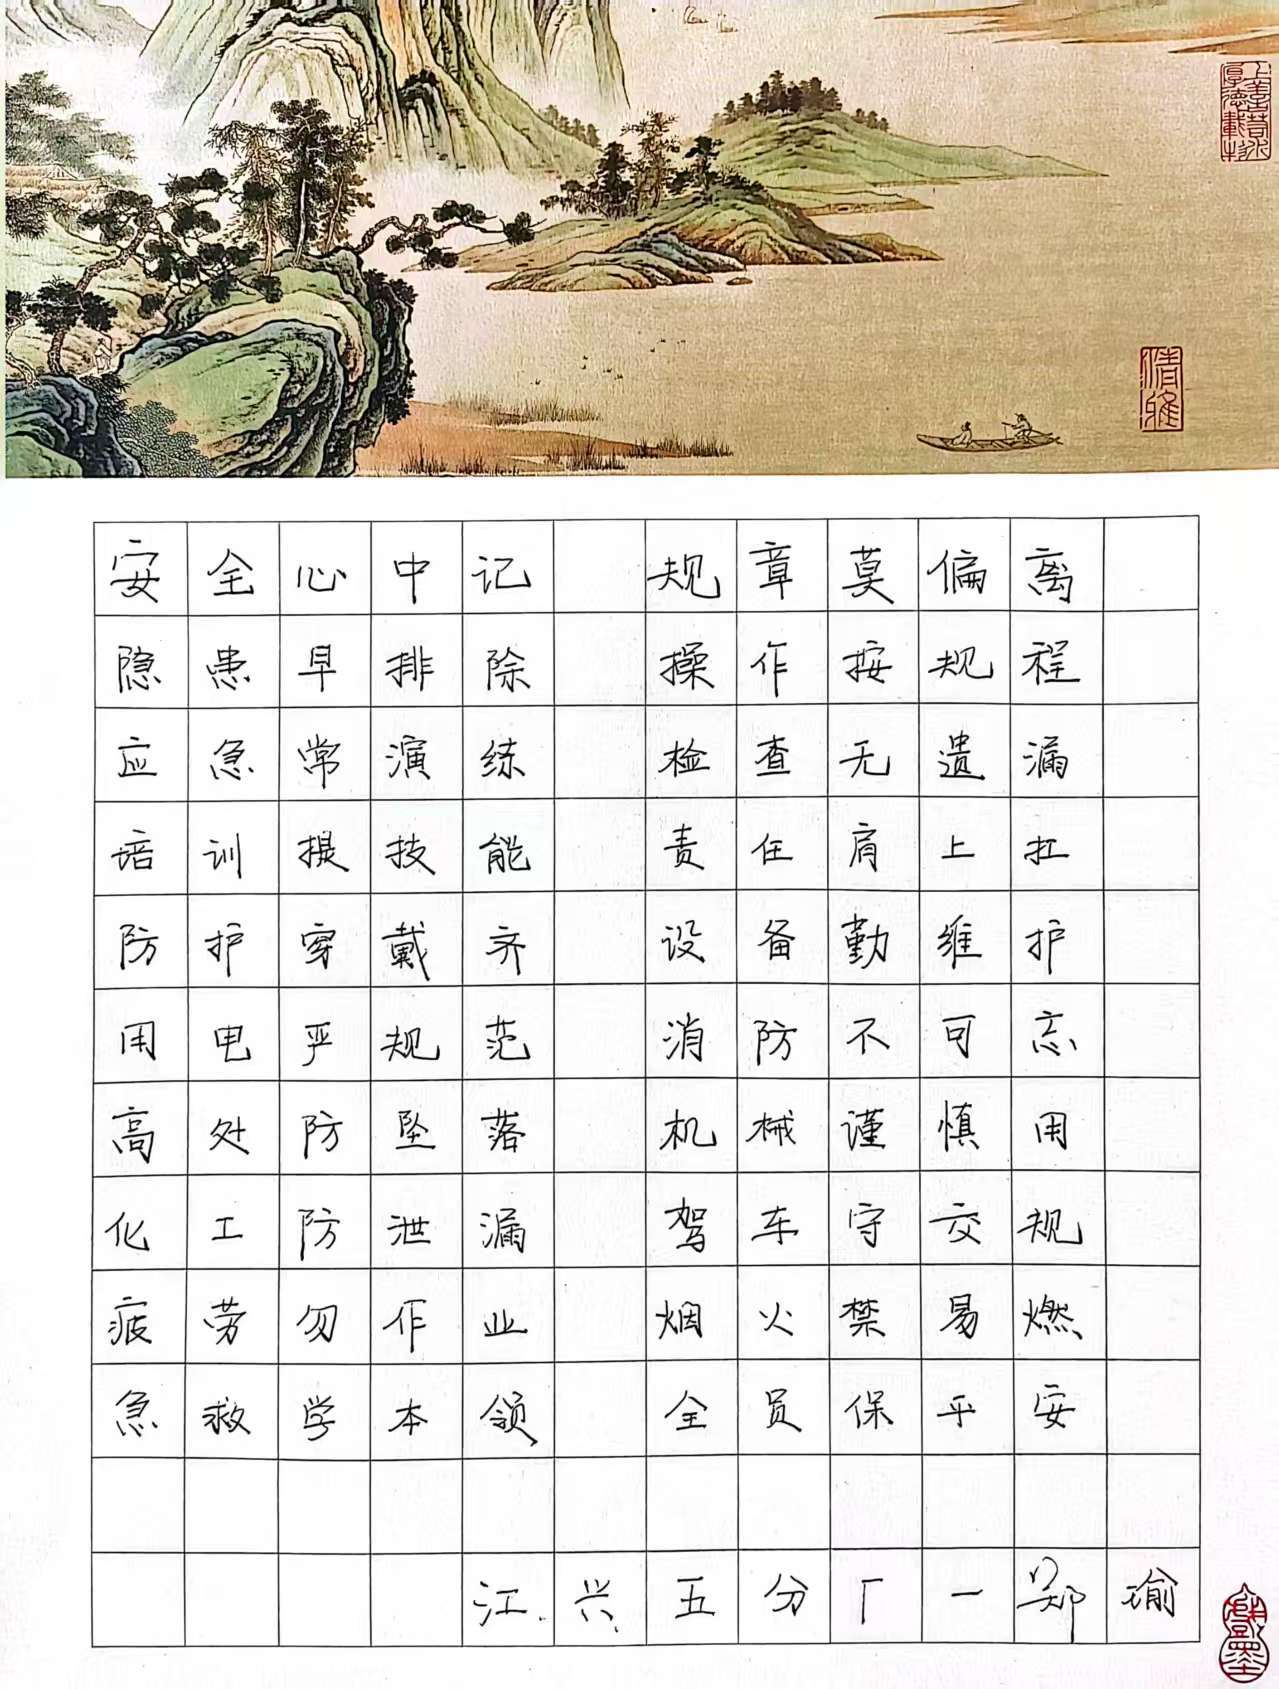 上善若水
厚德载物
清雅
安全心中记 规章莫偏离
隐患早排除 操作按规程
应急常演练 检查无遗漏
培训提技能 责任肩上扛
防护穿戴齐 设备勤维护
用电严规范 消防不可忘
高处防坠落 机械谨慎用
化工防泄漏 驾车守交规
疲劳勿作业 烟火禁易燃
急救学本领 全员保平安
江兴五分厂一郑瑜